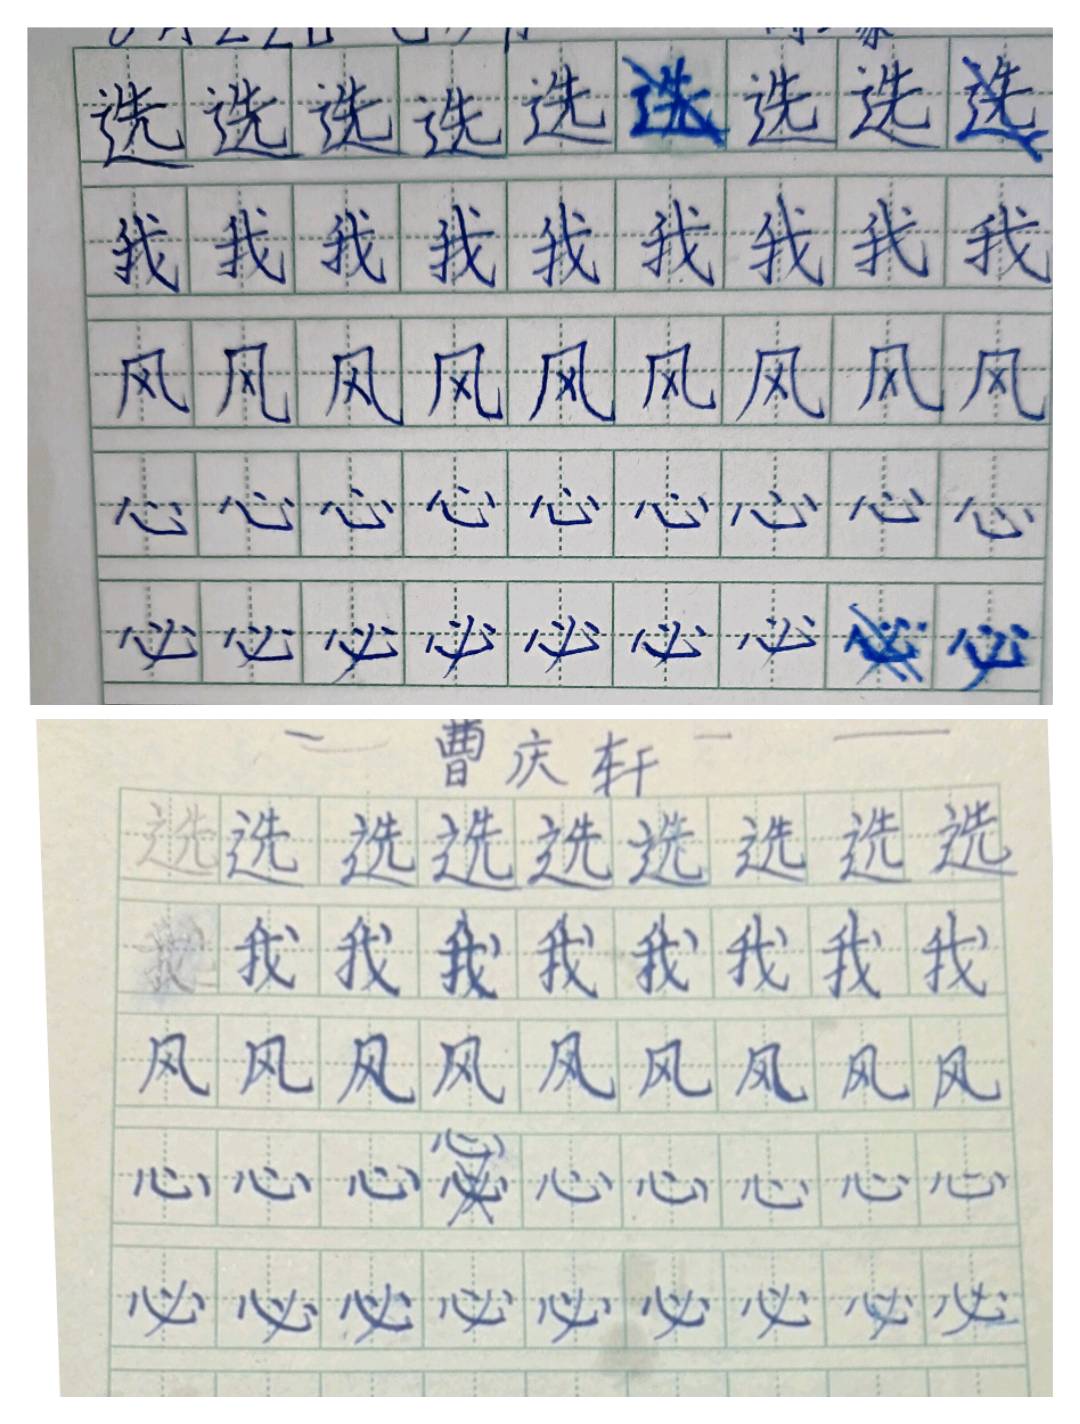 选选选选选选选选选
我我我我我我我我我
风风风风风风风风风
心心心心心心心心心
必必必必必必必必必
曹庆轩
选选选选选选选选选
我我我我我我我我我
风风风风风风风风风
心心心心心心心心心
必必必必必必必必必